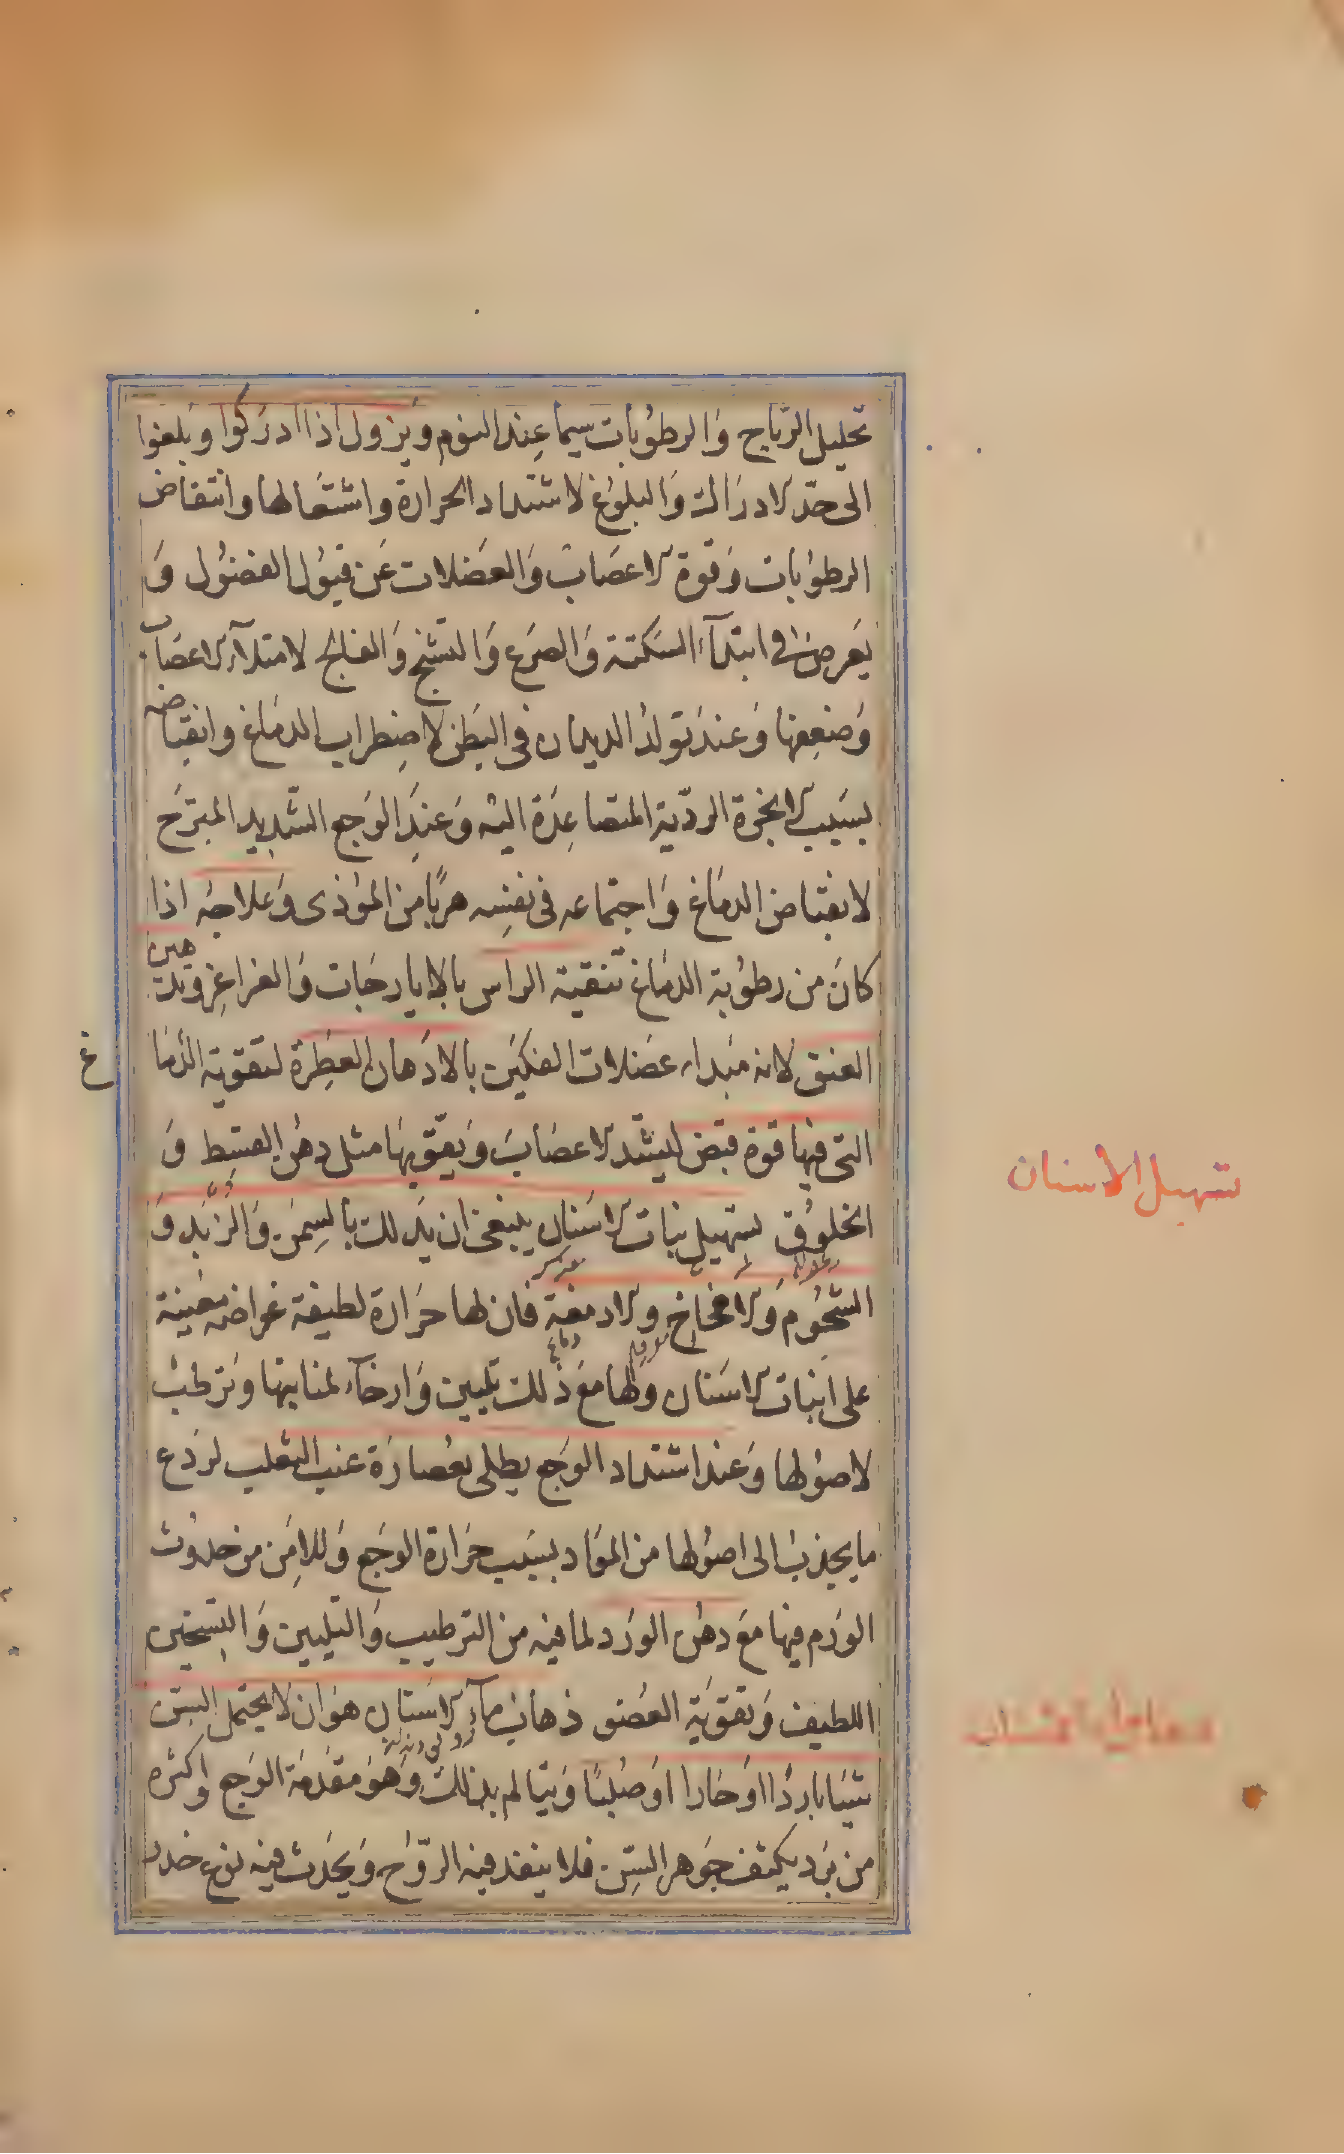 تحليل الرياح والرطوبات سيما عند النوم ويزول اذا ادركوا وبلغوا
الى حد الادراك والبلوغ لاشتداد الحرارة واشتعالها وانتقاض
الرطوبات وقوة الاعصاب والعضلات عن قبول الفضول و
يعرض فى ابتداء السكتة والصرع والتشنج والفالج لامتلاء الاعصاب
وضعفها وعند تولد الديدان فى البطن لاضطراب الدماغ وانقباضه
بسبب الابخرة الردية المتصاعدة اليه وعند الوجع الشديد المبرح
لانقباض الدماغ واجتماعه فى نفسه هربا من المؤذى وعلاجه اذا
كان من رطوبة الدماغ تنقية الراس بالايارجات والغراغر وتدهين
العنق لانه مبداء عضلات الفكين بالادهان العطرة لتقوية الدماغ
التى فيها قوة قبض ليشد الاعصاب ويقويها مثل دهن القسط و
الخلوق تسهيل نبات الاسنان ينبغى ان يدلك بالسمن والزبد و
الشحوم والامخاخ والادمغة فان لها حرارة لطيفة غواضة معينة
على انبات الاسنان ولها مع ذلك تليين وارخاء لمنابتها وترطيب
لاصولها وعند اشتداد الوجع يطلى بعصارة عنب الثعلب لردع
ما يجذب الى اصولها من المواد بسبب حرارة الوجع وللامن من حدوث
الورم فيها مع دهن الورد لما فيه من الترطيب والتليين والتسخين
اللطيف وتقوية العضو ذهاب ماء الاسنان هو ان لا يحتمل السن
شيئا باردا او حارا او صلبا ويتألم بذلك وهو مقدمة الوجع واكثره
من برد يكثف جوهر السن فلا ينفذ فيه الروح ويحدث فيه نوع خدر
تسهيل الاسنان